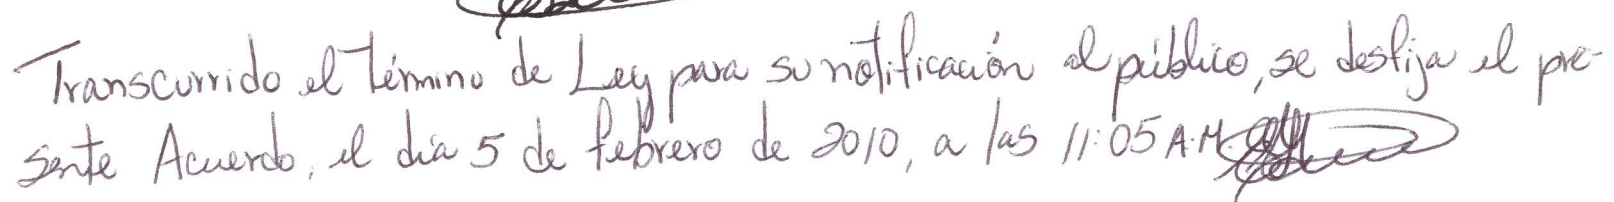 Transcurrido el término de Ley para su notificación al público, se desfija el pre-
sente Acuerdo, el día 5 de febrero de 2010, a las 11:05 A.M.